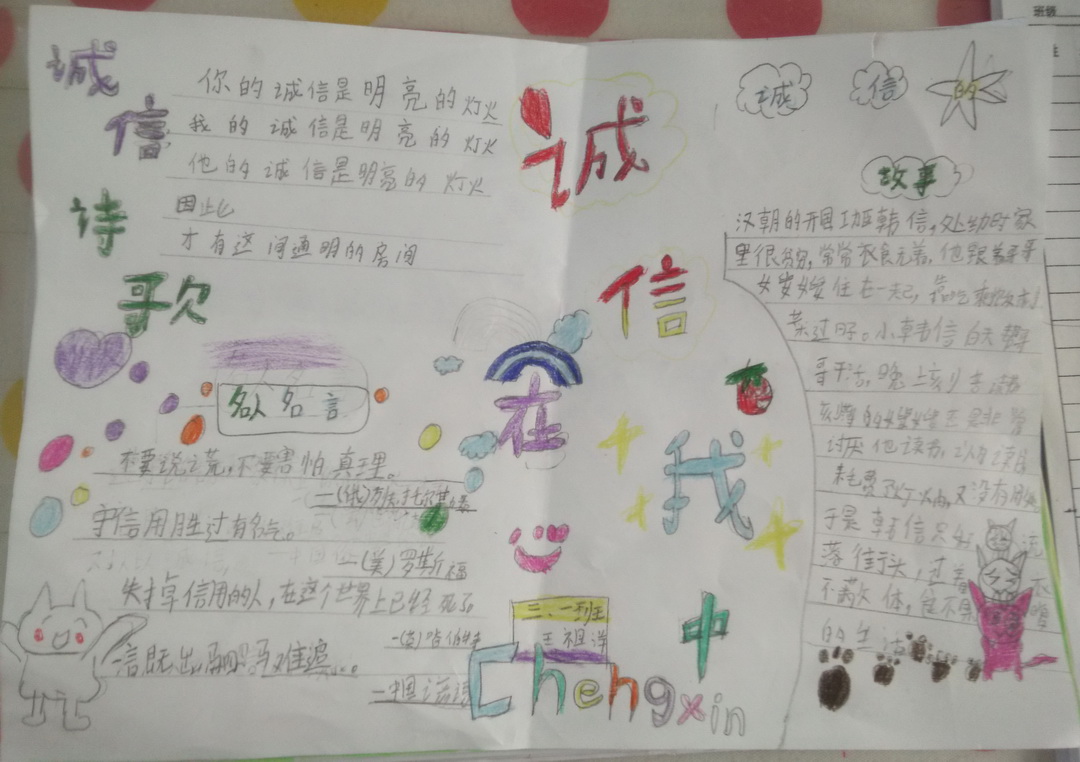 诚信诗歌
你的诚信是明亮的灯火
我的诚信是明亮的灯火
他的诚信是明亮的灯火
因此
才有这间通明的房间
名人名言
不要说谎,不要害怕真理。
—(俄)列夫.托尔斯泰
守信用胜过有名气。
—(美)罗斯福
失掉信用的人,在这个世界上已经死了
—(英)哈伯特
一言既出,驷马难追....
—中国谚语
诚信在我中
三、一班
王祖
Chengxin
诚信的
故事
汉朝的开国功臣韩信,处幼时家
里很贫穷,常常衣食无着,他跟着哥哥
嫂嫂住在一起,靠吃剩饭剩
菜过日子。小韩信白天帮
哥干活,晚上刻苦读书
刻薄的嫂嫂还是非常
讨厌他读书,认为读书
耗费了灯火,又没有用处
于是韩信只好流
落街头,过着衣
不蔽体,食不果
的生活
班级